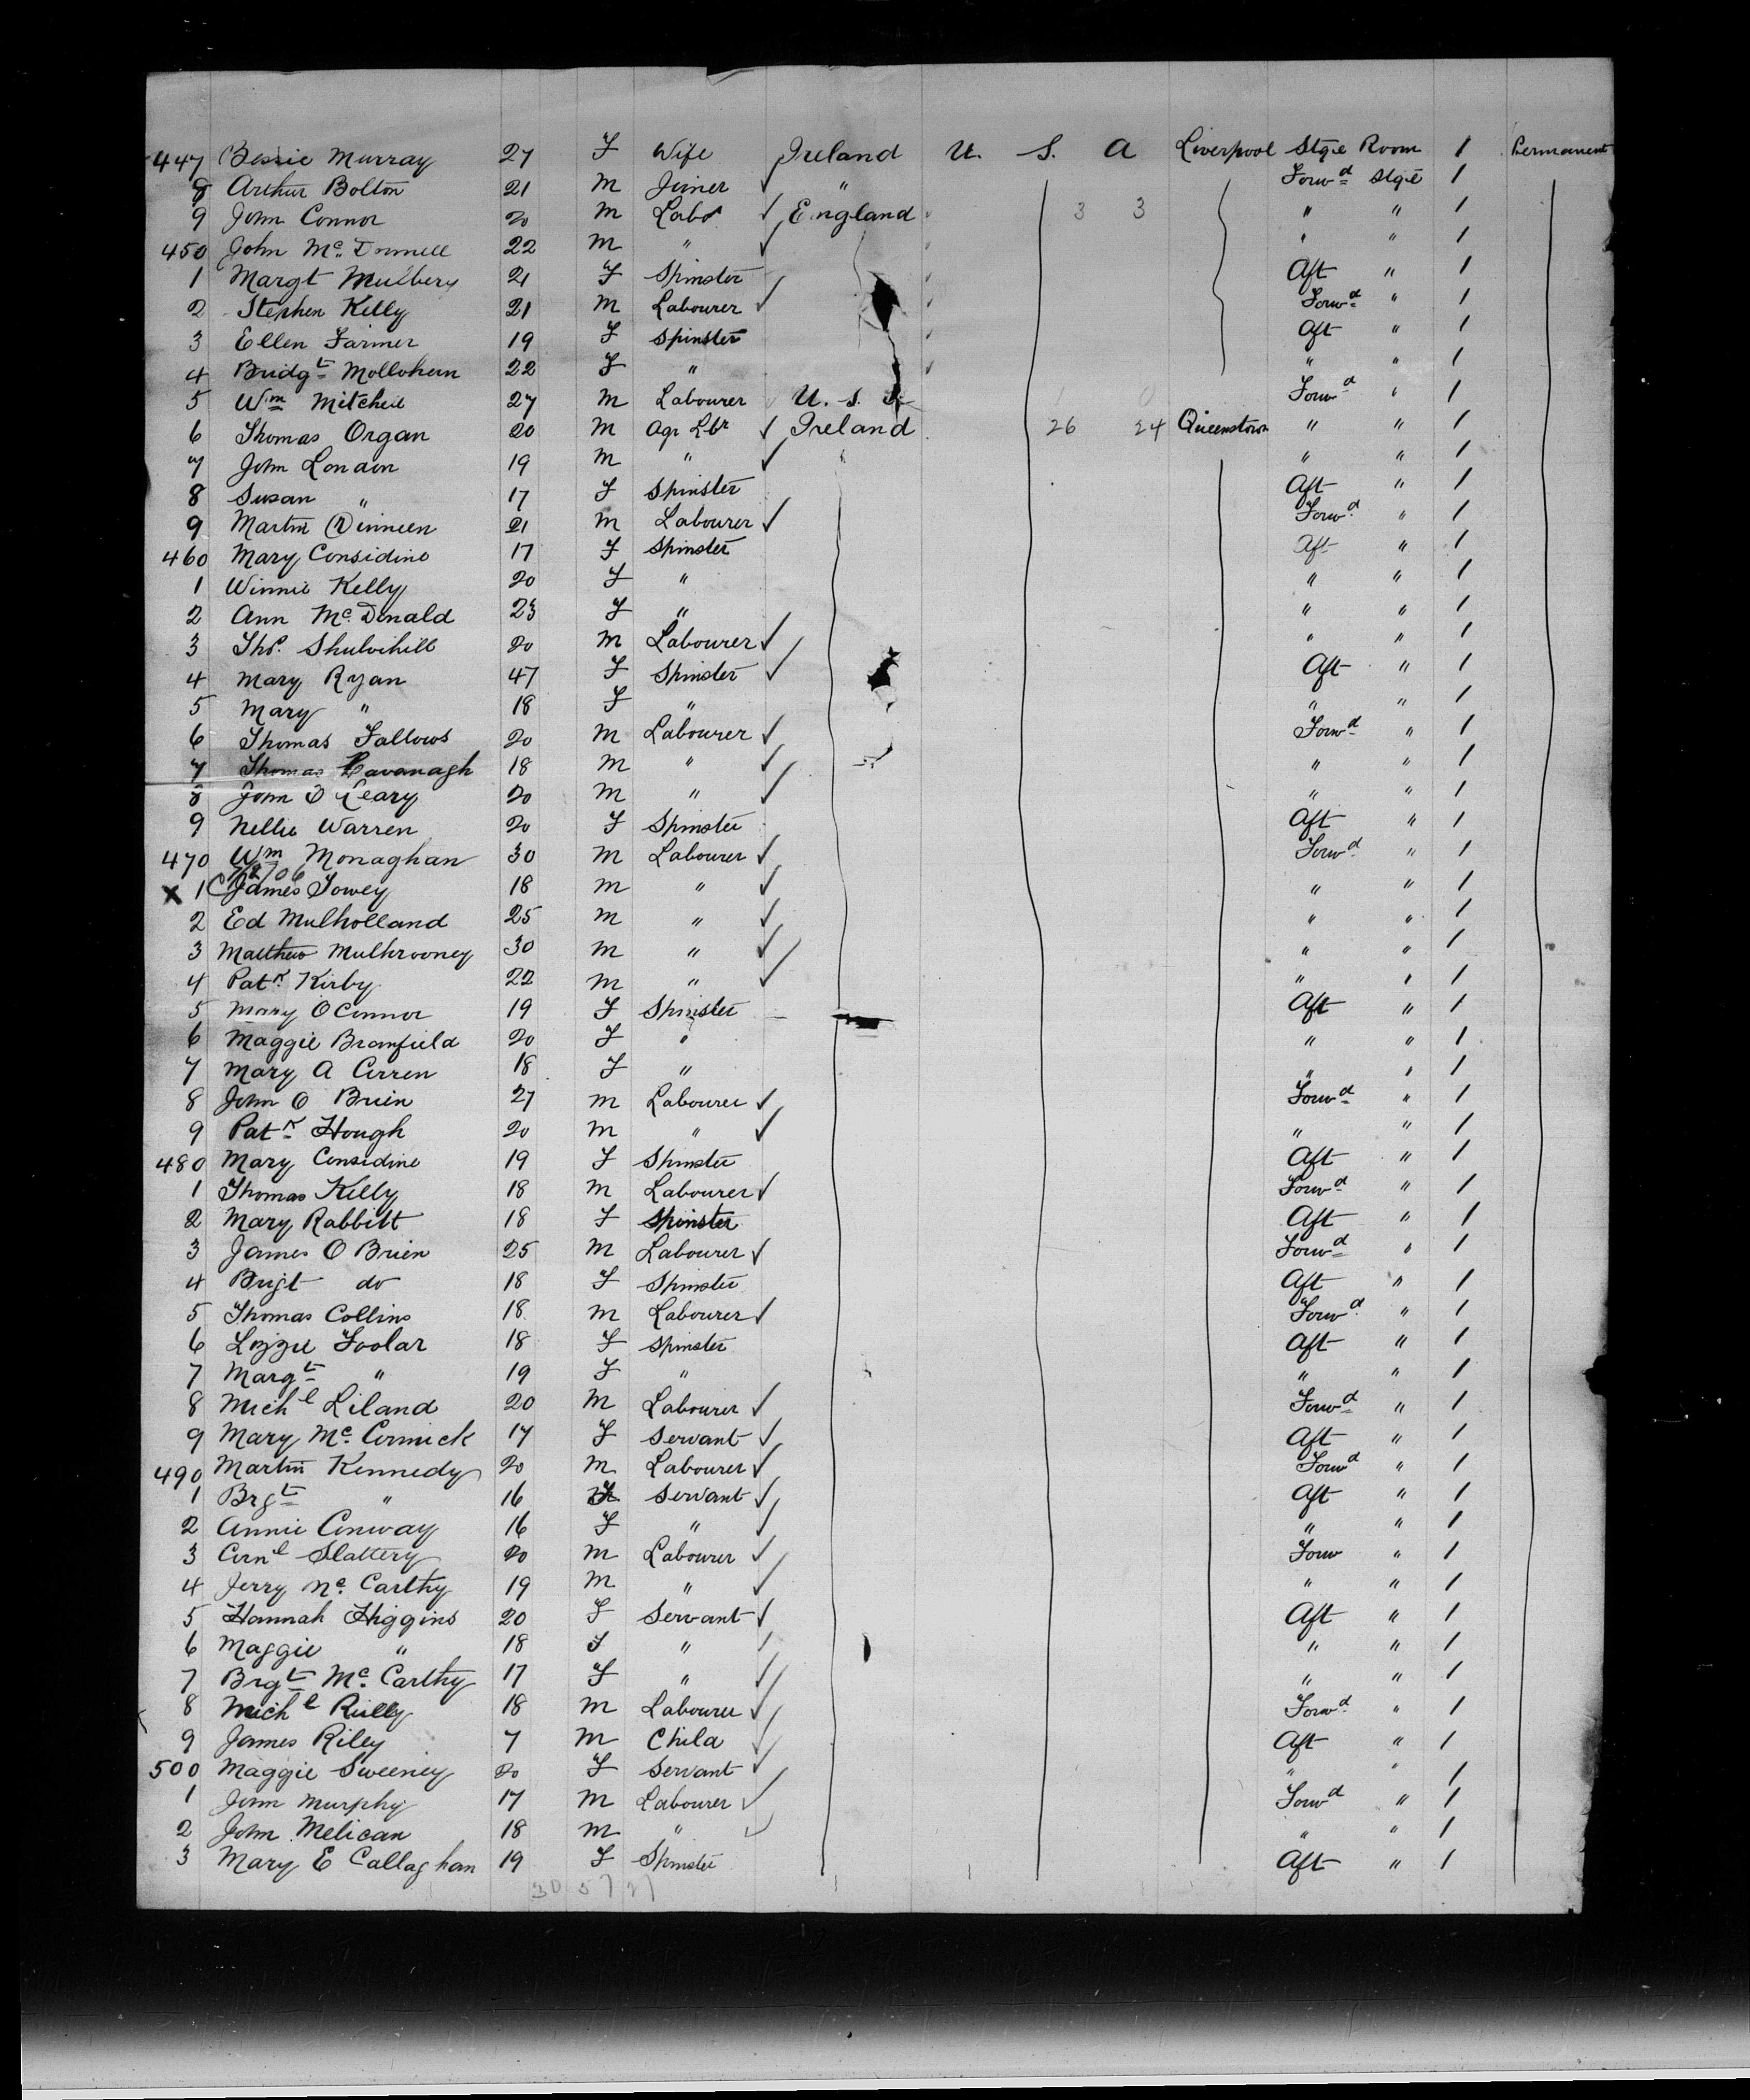 447 Bessie Murray 27 F Wife Ireland U. S. A Liverpool Stge Room 1 Permanent
8 Arthur Bolton 21 M Joiner ✓ " Forwd Stge 1
9 John Connor 20 M Labr ✓ England 3 3 " " 1
450 John Mc Donnell 22 M " ✓ " " 1
1 Margt Mulbery 21 F Spinster Aft " 1
2 Stephen Kelly 21 M Labourer ✓ Forwd " 1
3 Ellen Farmer 19 F Spinster Aft " 1
4 Bridgt Mollohern 22 F " " " 1
5 Wm Mitchell 27 M Labourer U. S. Forwd " 1
6 Thomas Organ 20 M Agr Lbr ✓ Ireland 26 24 Queenstown " " 1
7 John London 19 M " ✓ " " 1
8 Susan " 17 F Spinster Aft " 1
9 Martin Dinneen 21 M Labourer ✓ Forwd " 1
460 Mary Considine 17 F Spinster Aft " 1
1 Winnie Kelly 20 F " " " 1
2 Ann Mc Donald 23 F " " " 1
3 Thos Shulvihill 20 M Labourer ✓ " " 1
4 Mary Ryan 47 F Spinster ✓ Aft " 1
5 Mary " 18 F " " " 1
6 Thomas Fallows 20 M Labourer ✓ Forwd " 1
7 Thomas Kavanagh 18 M " ✓ " " 1
8 John O Leary 20 M " ✓ " " 1
9 Nellie Warren 20 F Spinster Aft " 1
470 Wm Monaghan 30 M Labourer ✓ Forwd " 1
X 1 James Towey 18 M " ✓ " " 1
2 Ed Mulholland 25 M " ✓ " " 1
3 Matthew Mulhrooney 30 M " ✓ " " 1
4 Patk Kirby 22 M " ✓ " " 1
5 Mary O Connor 19 F Spinster Aft " 1
6 Maggie Bramfield 20 F " " " 1
7 Mary A Curren 18 F " " " 1
8 John O Brien 27 M Labourer ✓ Forwd " 1
9 Patk Hough 20 M " ✓ " " 1
480 Mary Considine 19 F Spinster Aft " 1
1 Thomas Kelly 18 M Labourer ✓ Forwd " 1
2 Mary Rabbitt 18 F Spinster Aft " 1
3 James O Brien 25 M Labourer ✓ Forwd " 1
4 Brigt do 18 F Spinster Aft " 1
5 Thomas Collins 18 M Labourer ✓ Forwd " 1
6 Lizzie Foolar 18 F Spinster Aft " 1
7 Margt " 19 F " " " 1
8 Michl Liland 20 M Labourer ✓ Forwd " 1
9 Mary Mc Cormick 17 F Servant ✓ Aft " 1
490 Martin Kennedy 20 M Labourer ✓ Forwd " 1
1 Brgt " 16 F Servant ✓ Aft " 1
2 Annie Conway 16 F " ✓ " " 1
3 Cornl Slattery 20 M Labourer ✓ Forw " 1
4 Jerry Mc Carthy 19 M " ✓ " " 1
5 Hannah Higgins 20 F Servant ✓ Aft " 1
6 Maggie " 18 F " ✓ " " 1
7 Brgt Mc Carthy 17 F " ✓ " " 1
8 Michl Reilly 18 M Labourer ✓ Forwd " 1
9 James Riley 7 M Child ✓ Aft " 1
500 Maggie Sweeney 20 F Servant ✓ " " 1
1 John Murphy 17 M Labourer ✓ Forwd " 1
2 John Melican 18 M " ✓ " " 1
3 Mary E Callaghan 19 F Spinster Aft " 1
30 57 27